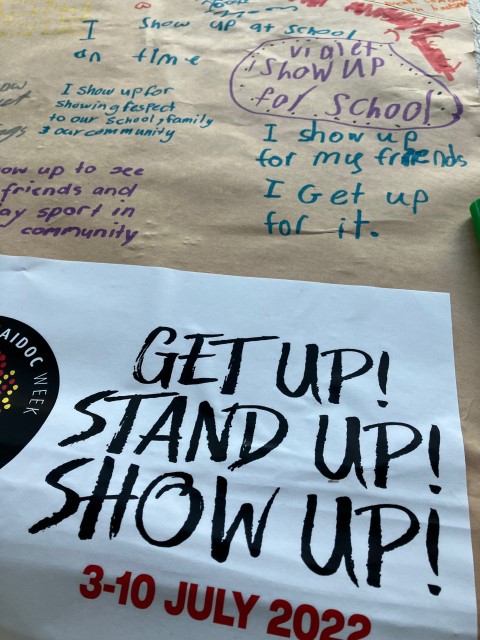 I show up at School
on time
violet
i show up
for school
I show up for
showing respect
to our school, family
& our community
I show up
for my friends
I Get up
for it.
ow up to see
friends and
ay sport in
community
AIDOC WEEK
GET UP!
STAND UP!
SHOW UP!
3-10 JULY 2022